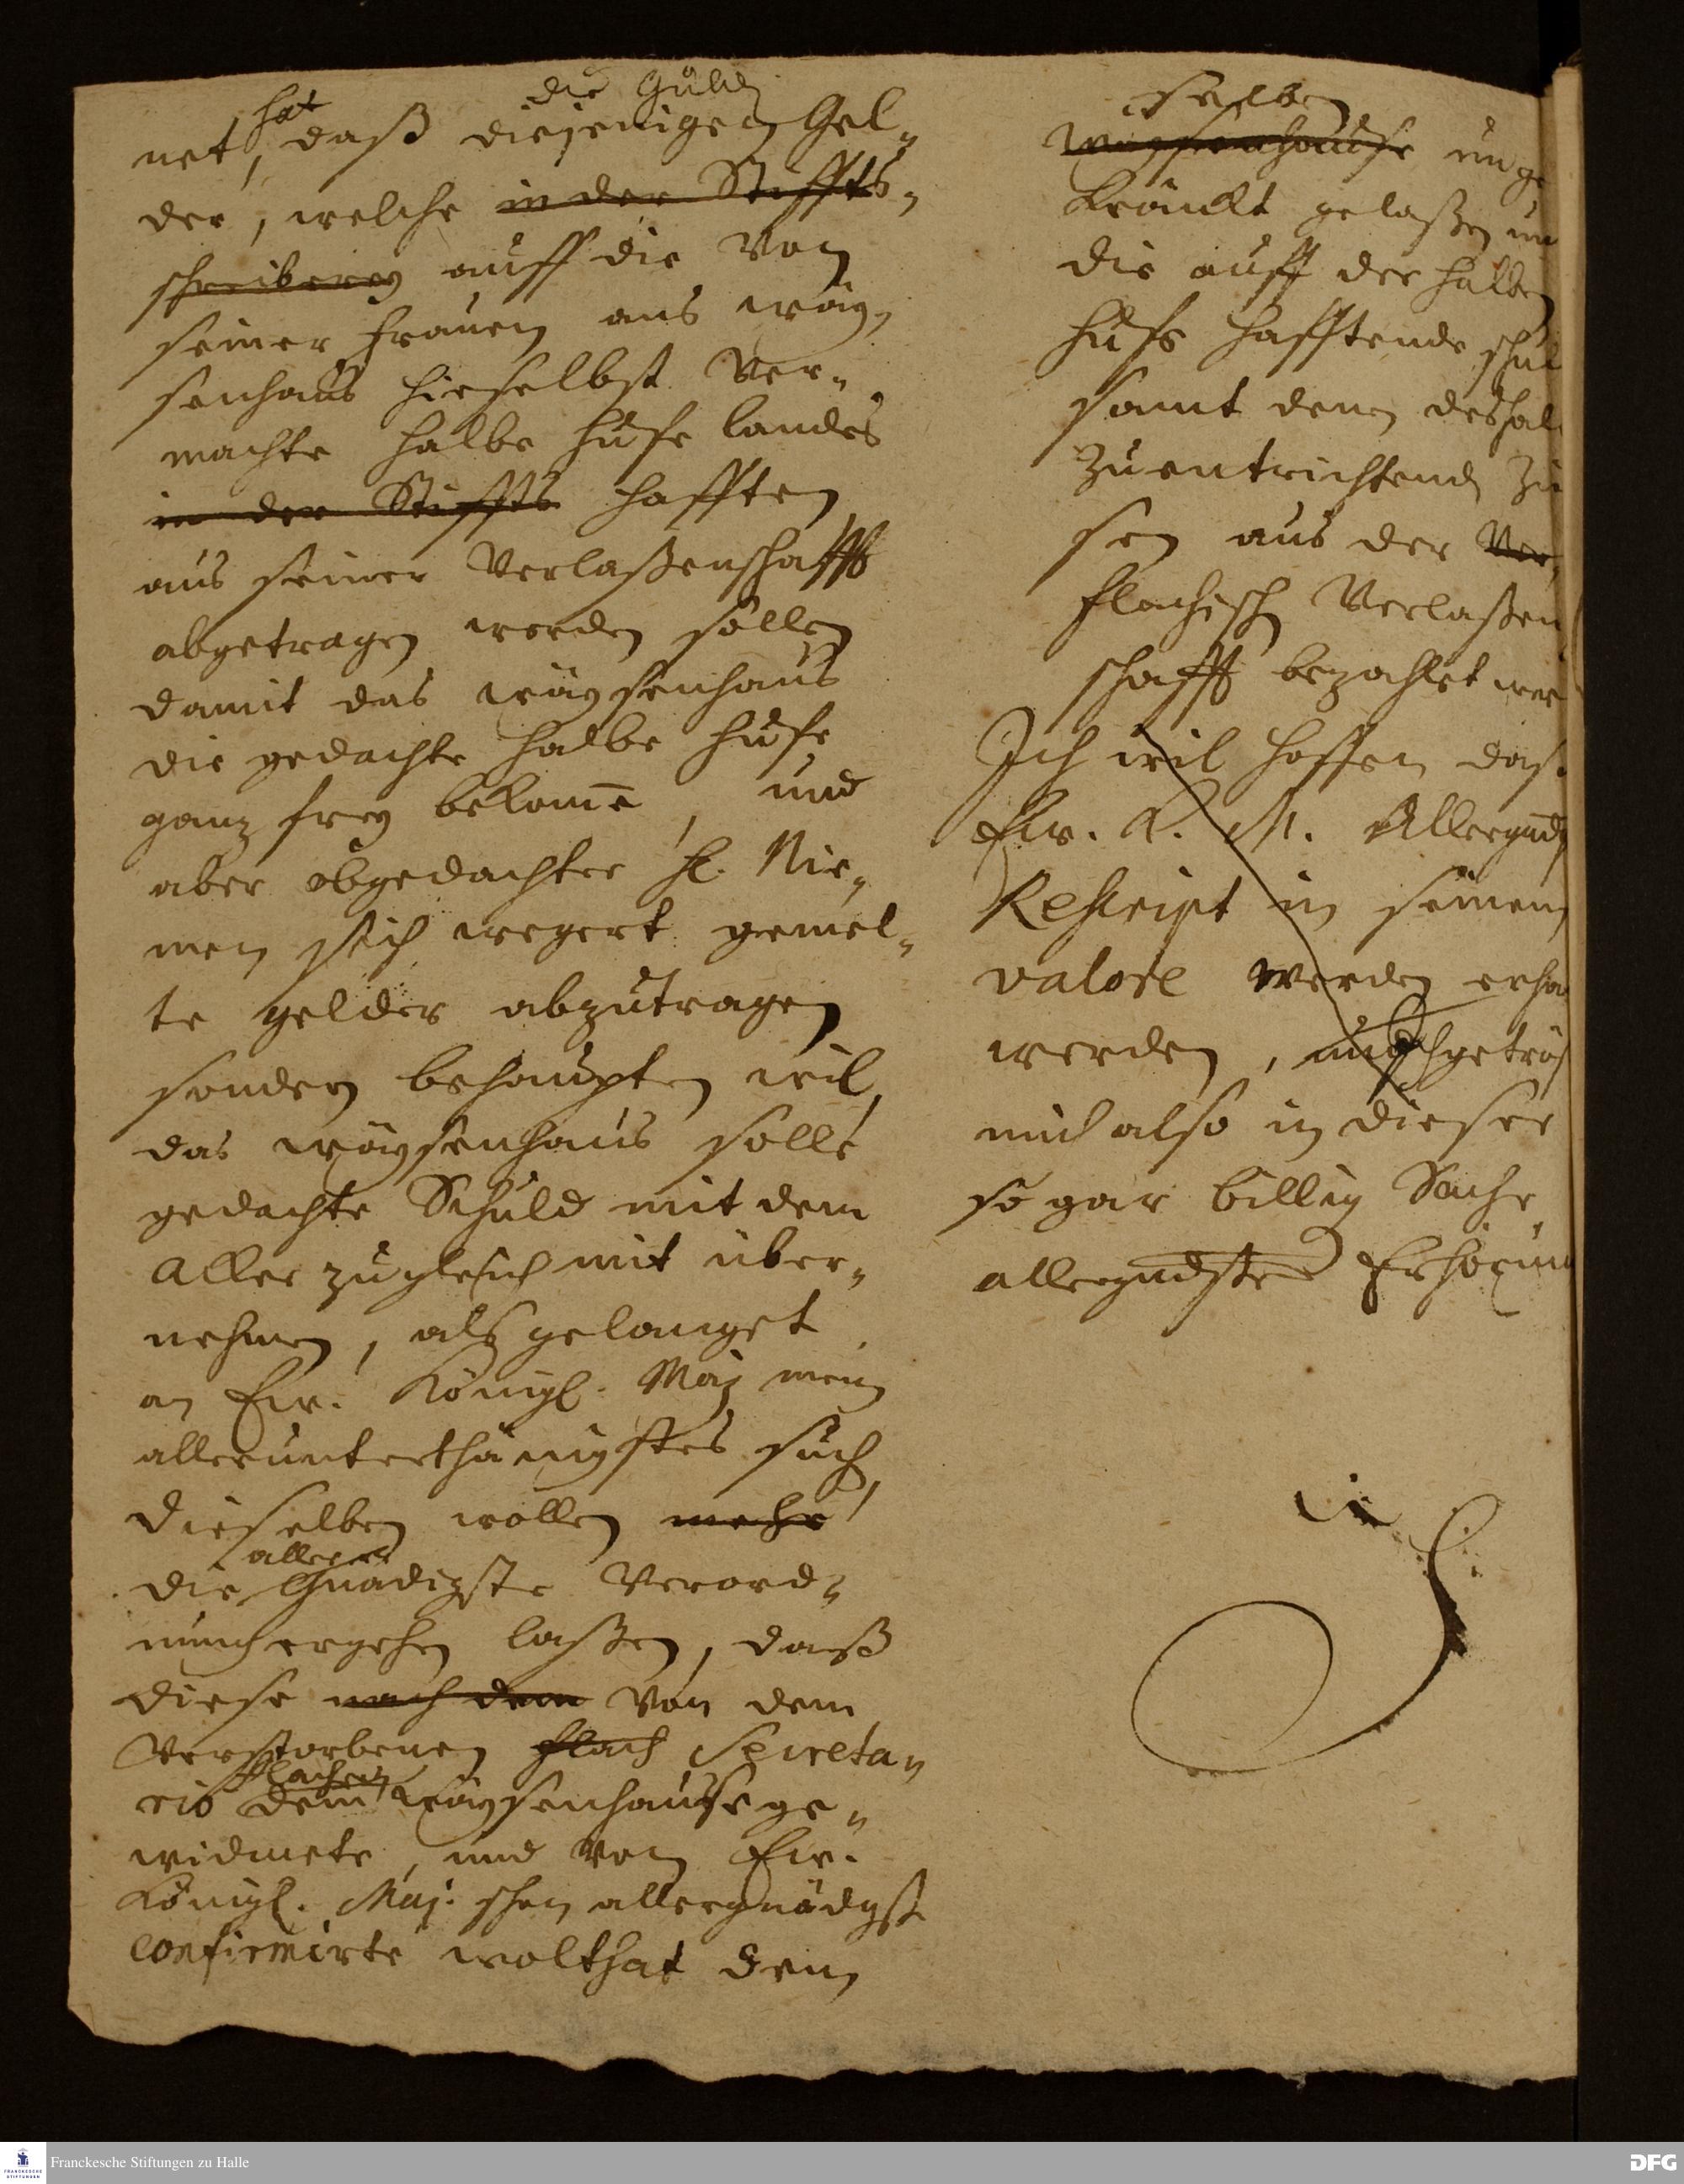 die Güld
net, hat daß diejenigen Gel-
der, welche in der Stiffts-
schreiberey auff die von
seiner Frauen ans wäy-
senhaus hieselbst ver-
machte halbe hufe landes
in der Stiffts hafften
aus seiner Verlaßenschafft
abgetragen werden sollen
damit das wäysenhaus
die gedachte halbe hufe
ganz frey bekome, und
aber obgedachter H. Nie-
men sich wegert gemel-
te gelder abzutragen
sondern behaupten wil,
das wäysenhaus solle
gedachte Schuld mit dem
Aller zugleich mit über-
nehmen, als gelanget
an Ew. Königl. Maj mein
allerunterthänigstes such,
dieselben wollen mehr
aller
die Gnädigste Verord-
nung ergehen laßen, daß
diese nach dem von dem
Verstorbenen Flach Secreta-
Flachen
rio dem wäysenhause ge-
widmete, und von Ew.
Königl. Maj. schon allergnädgst
confirmirte wolthat dem
selben
wäysenhause unge
kränckt gelaßen un
die auff der halben
hufe hafftende schul
samt denen deshal
zuentrichtend Zin
sen aus der Ver
Flachisch Verlaßen
schafft bezahlet wer
Ich wil hoffen das
Ew. K. M. Allergndst
Rescript in seinem
valore werden erha
werden, getrös
mich also in dieser
so gar billig Sache
allergndster Erhörung